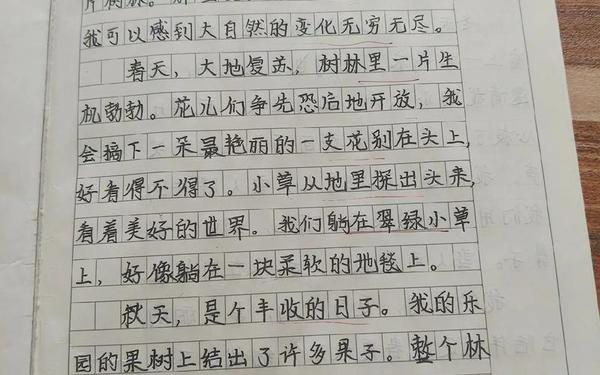 我可以感到大自然的变化无穷无尽。
春天，大地复苏，树林里一片生
机勃勃。花儿们争先恐后地开放，我
会摘下一朵最艳丽的一支花别在头上，
好看得不得了。小草从地里探出头来，
看着美好的世界。我们躺在翠绿小草
上，好像躺在一块柔软的地毯上。
秋天，是个丰收的日子。我的乐
园的果树上结出了许多果子。整个林